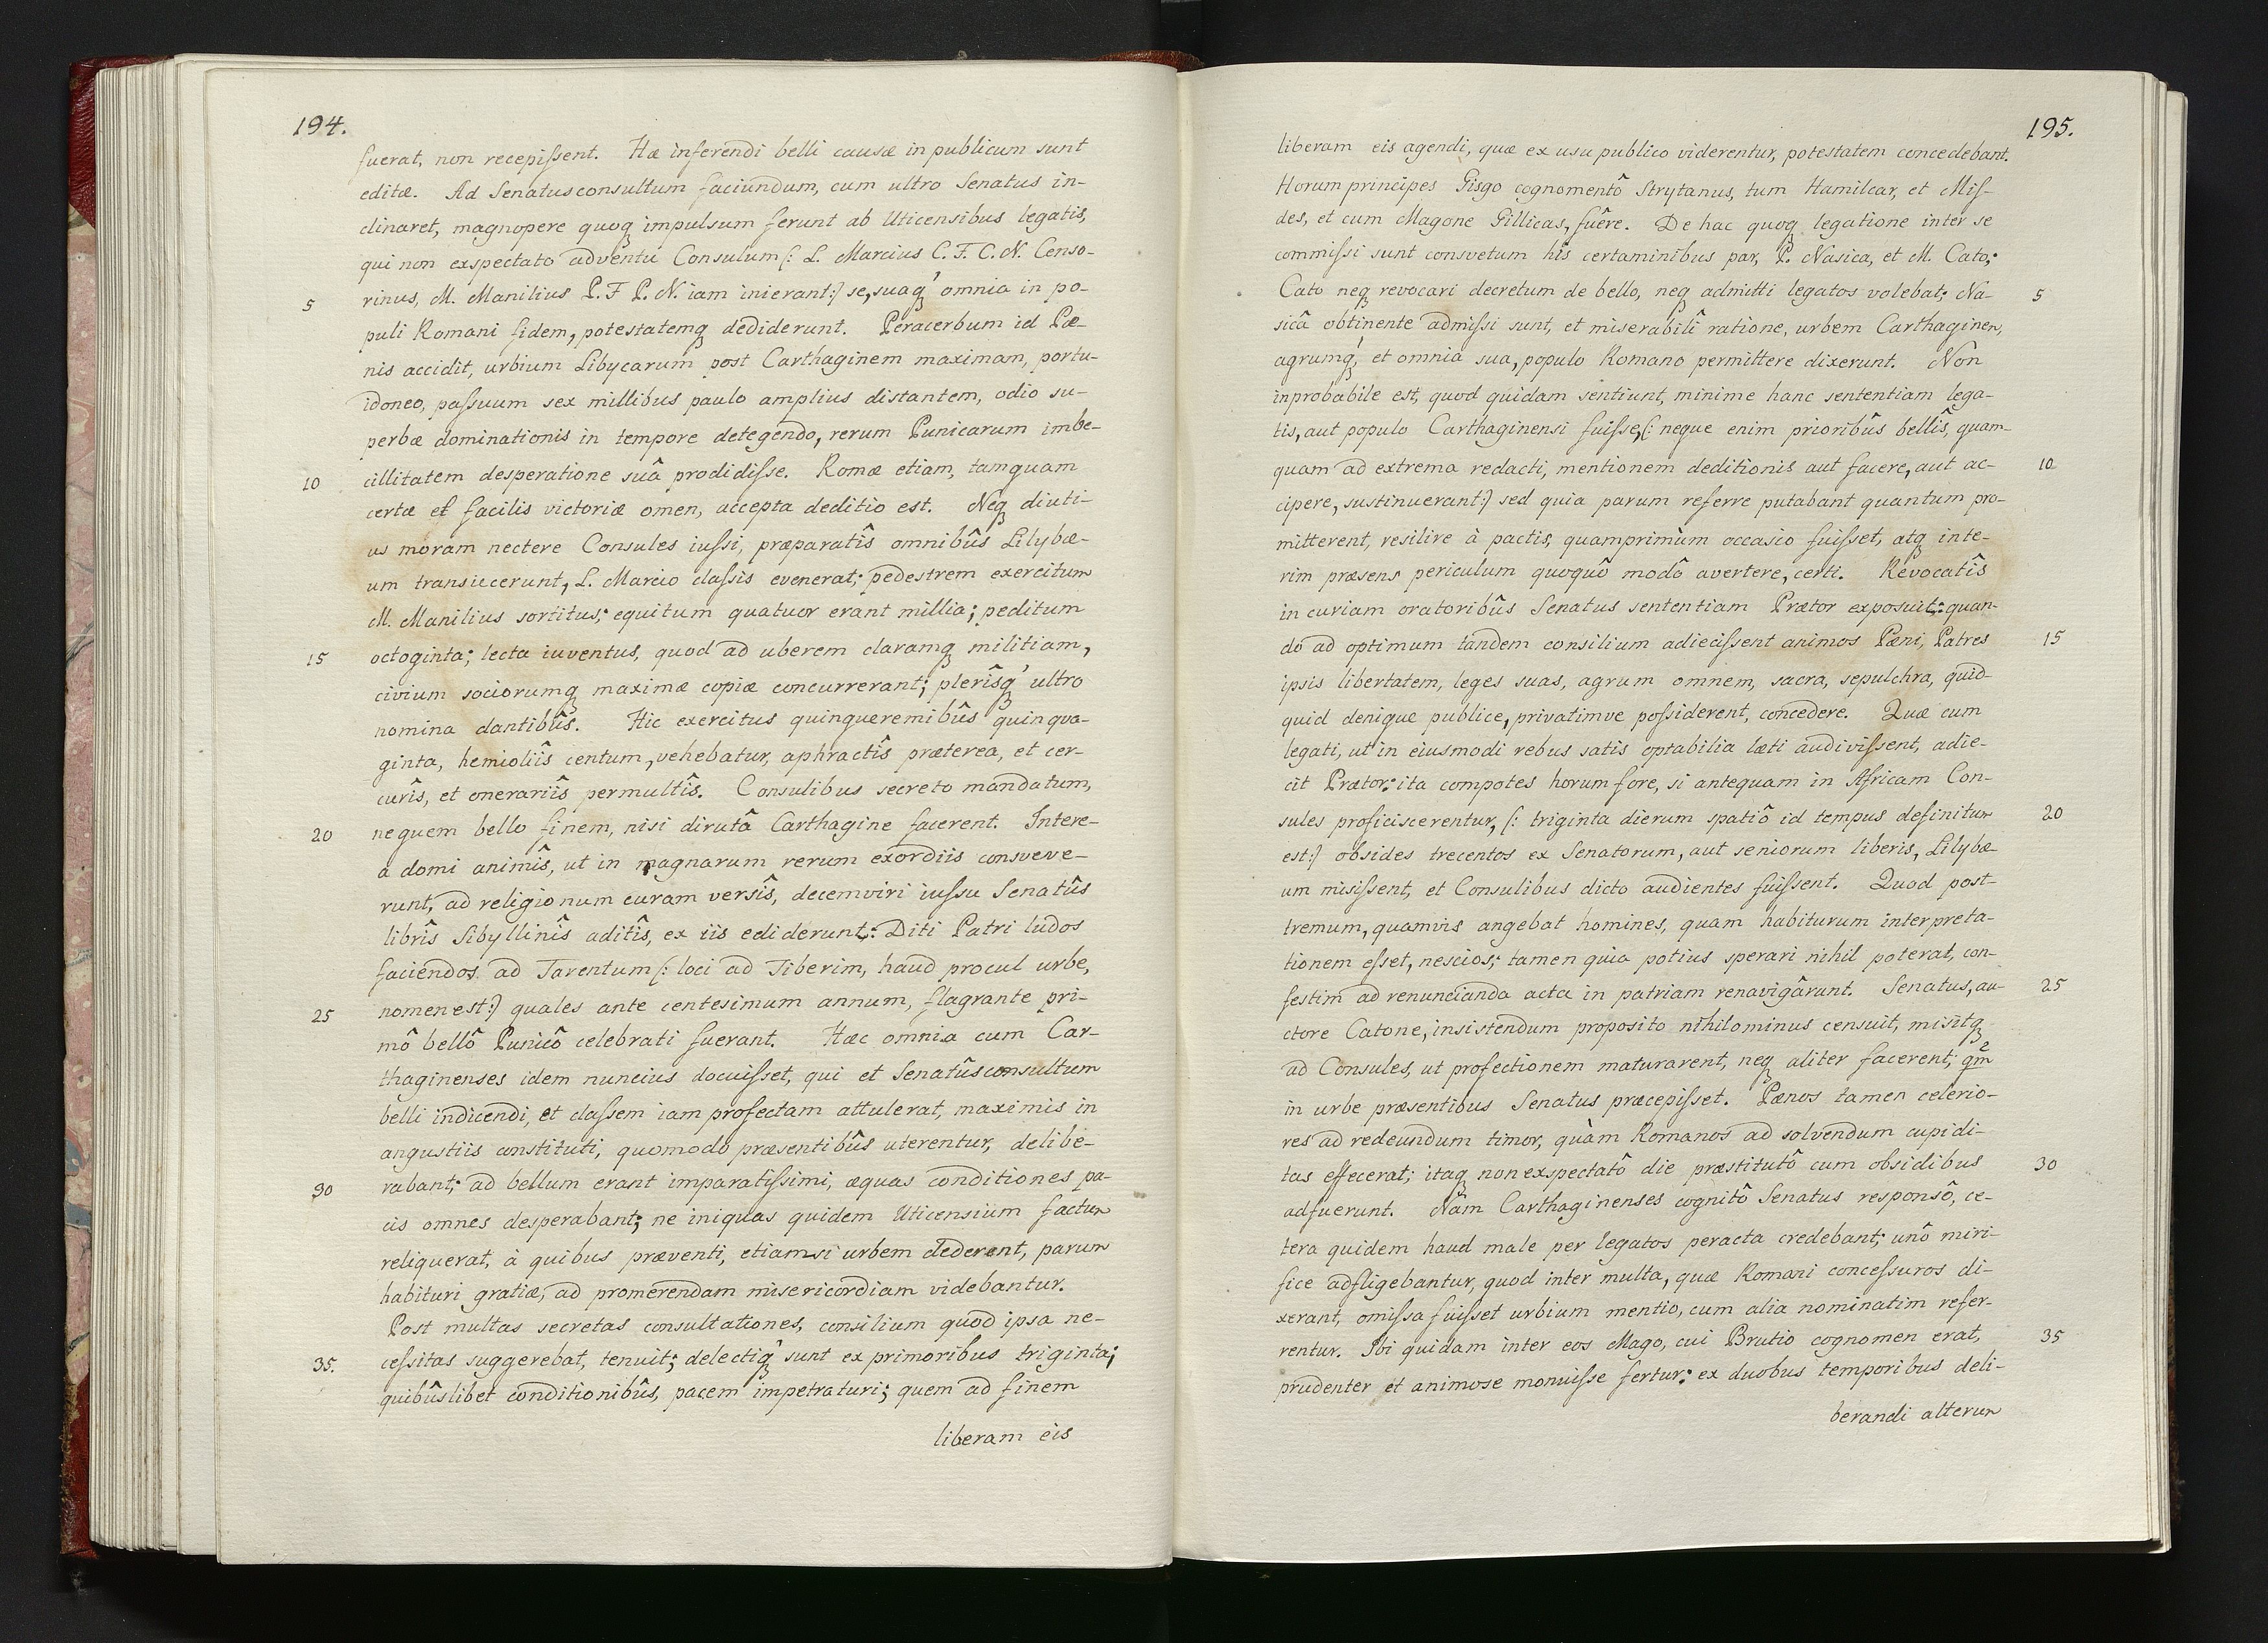 194.
fuerat, non recepiſsent. Hæ inferendi belli causæ in publicum sunt
editæ. Ad Senatusconsultum faciundum, cum ultro Senatus in-
clinaret, magnopere quoq impulsum ferunt ab Uticensibus legatis,
qui non exspectato adventu Consulum (: L. Marcius C. F. C. N. Censo-
5 rinus, M. Manilius P. F P. N. iam inierant:) se, suaq́ omnia in po-
puli Romani fidem, potestatemq dediderunt. Peracerbum id Pæ-
nis accidit, urbium Libycarum post Carthaginem maximam, portu-
idoneo, paſsuum sex millibus paulo amplius distantem, odio su-
perbæ dominationis in tempore detegendo, rerum Punicarum imbe-
10 cillitatem desperatione suâ prodidiſse. Romæ etiam, tamquam
certæ et facilis victoriæ omen, accepta deditio est. Neq diuti-
us moram nectere Consules iuſsi, præparatîs omnibûs Lilybæ-
um transiecerunt, L. Marcio claſsis evenerat; pedestrem exercitum
M. Manilius sortitus; equitum quatuor erant millia; peditum
15 octoginta; lecta iuventus, quod ad uberem claramq militiam,
civium sociorumq maximæ copiæ concurrerant; plerîsq́ ultro
nomina dantibûs. Hic exercitus quinqueremibûs quinqua-
ginta, hemioliîs centum, vehebatur, aphractîs præterea, et cer-
curîs, et onerariîs permultîs. Consulibus secreto mandatum,
20 nequem bello finem, nisi dirutâ Carthagine facerent. Intere-
a domi animîs, ut in magnarum rerum exordiis consveve-
runt, ad religionum curam versîs, decemviri iuſsu Senatûs
librîs Sibyllinîs aditîs, ex iis ediderunt: Diti Patri ludos
faciendos ad Tarentum (: loci ad Tiberim, haud procul urbe,
25 nomen est:) quales ante centesimum annum, flagrante pri-
mô bellô Punicô celebrati fuerant. Hæc omnia cum Car-
thaginenses idem nuncius docuiſset, qui et Senatûsconsultum
belli indicendi, et claſsem iam profectam attulerat, maximis in
angustiis constituti, quomodo præsentibûs uterentur, delibe-
30 rabant; ad bellum erant imparatiſsimi, æquas conditiones pa-
cis omnes desperabant; ne iniquas quidem Uticensium factum
reliquerat, à quibus præventi, etiamsi urbem dederent, parum
habituri gratiæ, ad promerendam misericordiam videbantur.
Post multas secretas consultationes, consilium quod ipsa ne-
35. ceſsitas suggerebat, tenuit; delectiq́ sunt ex primoribus triginta;
quibûslibet conditionibûs, pacem impetraturi; quem ad finem
liberam eis
195.
liberam eis agendi, quæ ex usu publico viderentur, potestatem concedebant.
Horum principes Gisgo cognomentô Strytanus, tum Hamilcar, et Miſ-
des, et cum Magone Gillicas, fuêre. De hac quoq legatione inter se
commiſsi sunt consvetum his certaminibus par, P. Nasica, et M. Cato;
Cato neq revocari decretum de bello, neq admitti legatos volebat; Na- 5
sicâ obtinente admiſsi sunt, et miserabilî ratione, urbem Carthaginem,
agrumq́ et omnia sua, populo Romano permittere dixerunt. Non
inprobabile est, quod quidam sentiunt, minime hanc sententiam lega-
tis, aut populo Carthaginensi fuiſse, (: neque enim prioribûs bellîs, quam-
quam ad extrema redacti, mentionem deditionis aut facere, aut ac- 10
cipere, sustinuerant:) sed quia parum referre putabant quantum pro-
mitterent, resilire à pactis, quamprimùm occasio fuiſset, atq inte-
rim præsens periculum quoquô modô avertere, certi. Revocatîs
in curiam oratoribûs Senatus sententiam Prætor exposuit: quan-
do ad optimum tandem consilium adieciſsent animos Pæni, Patres 15
ipsis libertatem, leges suas, agrum omnem, sacra, sepulchra, quid-
quid denique publice, privatimve poſsiderent, concedere. Quæ cum
legati, ut in eiusmodi rebus satis optabilia læti audiviſsent, adie-
cit Prætor: ita compotes horum fore, si antequam in Africam Con-
sules proficiscerentur, (: triginta dierum spatiô id tempus definitum 20
est:) obsides trecentos ex Senatorum, aut seniorum liberis, Lilybæ-
um misiſsent, et Consulibus dicto audientes fuiſsent. Quod post-
tremum, quamvis angebat homines, quam habiturum interpreta-
tionem eſset, nescios; tamen quia potius sperari nihil poterat, con-
festim ad renuncianda acta in patriam renavigârunt. Senatus, au- 25
ctore Catone, insistendum proposito nihilominus censuit, misitq
ad Consules, ut profectionem maturarent, neq aliter facerent, qm̃
in urbe præsentibus Senatus præcepiſset. Pænos tamen celerio-
res ad redeundum timor, quàm Romanos ad solvendum cupidi-
tas effecerat; itaq non exspectatô die præstitutô cum obsidibus 30
adfuerunt. Nam Carthaginenses cognitô Senatus responsô, ce-
tera quidem haud male per legatos peracta credebant; unô miri-
fice adfligebantur, quod inter multa, quæ Romani conceſsuros di-
xerant, omiſsa fuiſset urbium mentio, cum alia nominatim refer-
rentur. Ibi quidam inter eos Mago, cui Brutio cognomen erat, 35
prudenter et animose monuiſse fertur: ex duobus temporibus deli-
berandi alterum